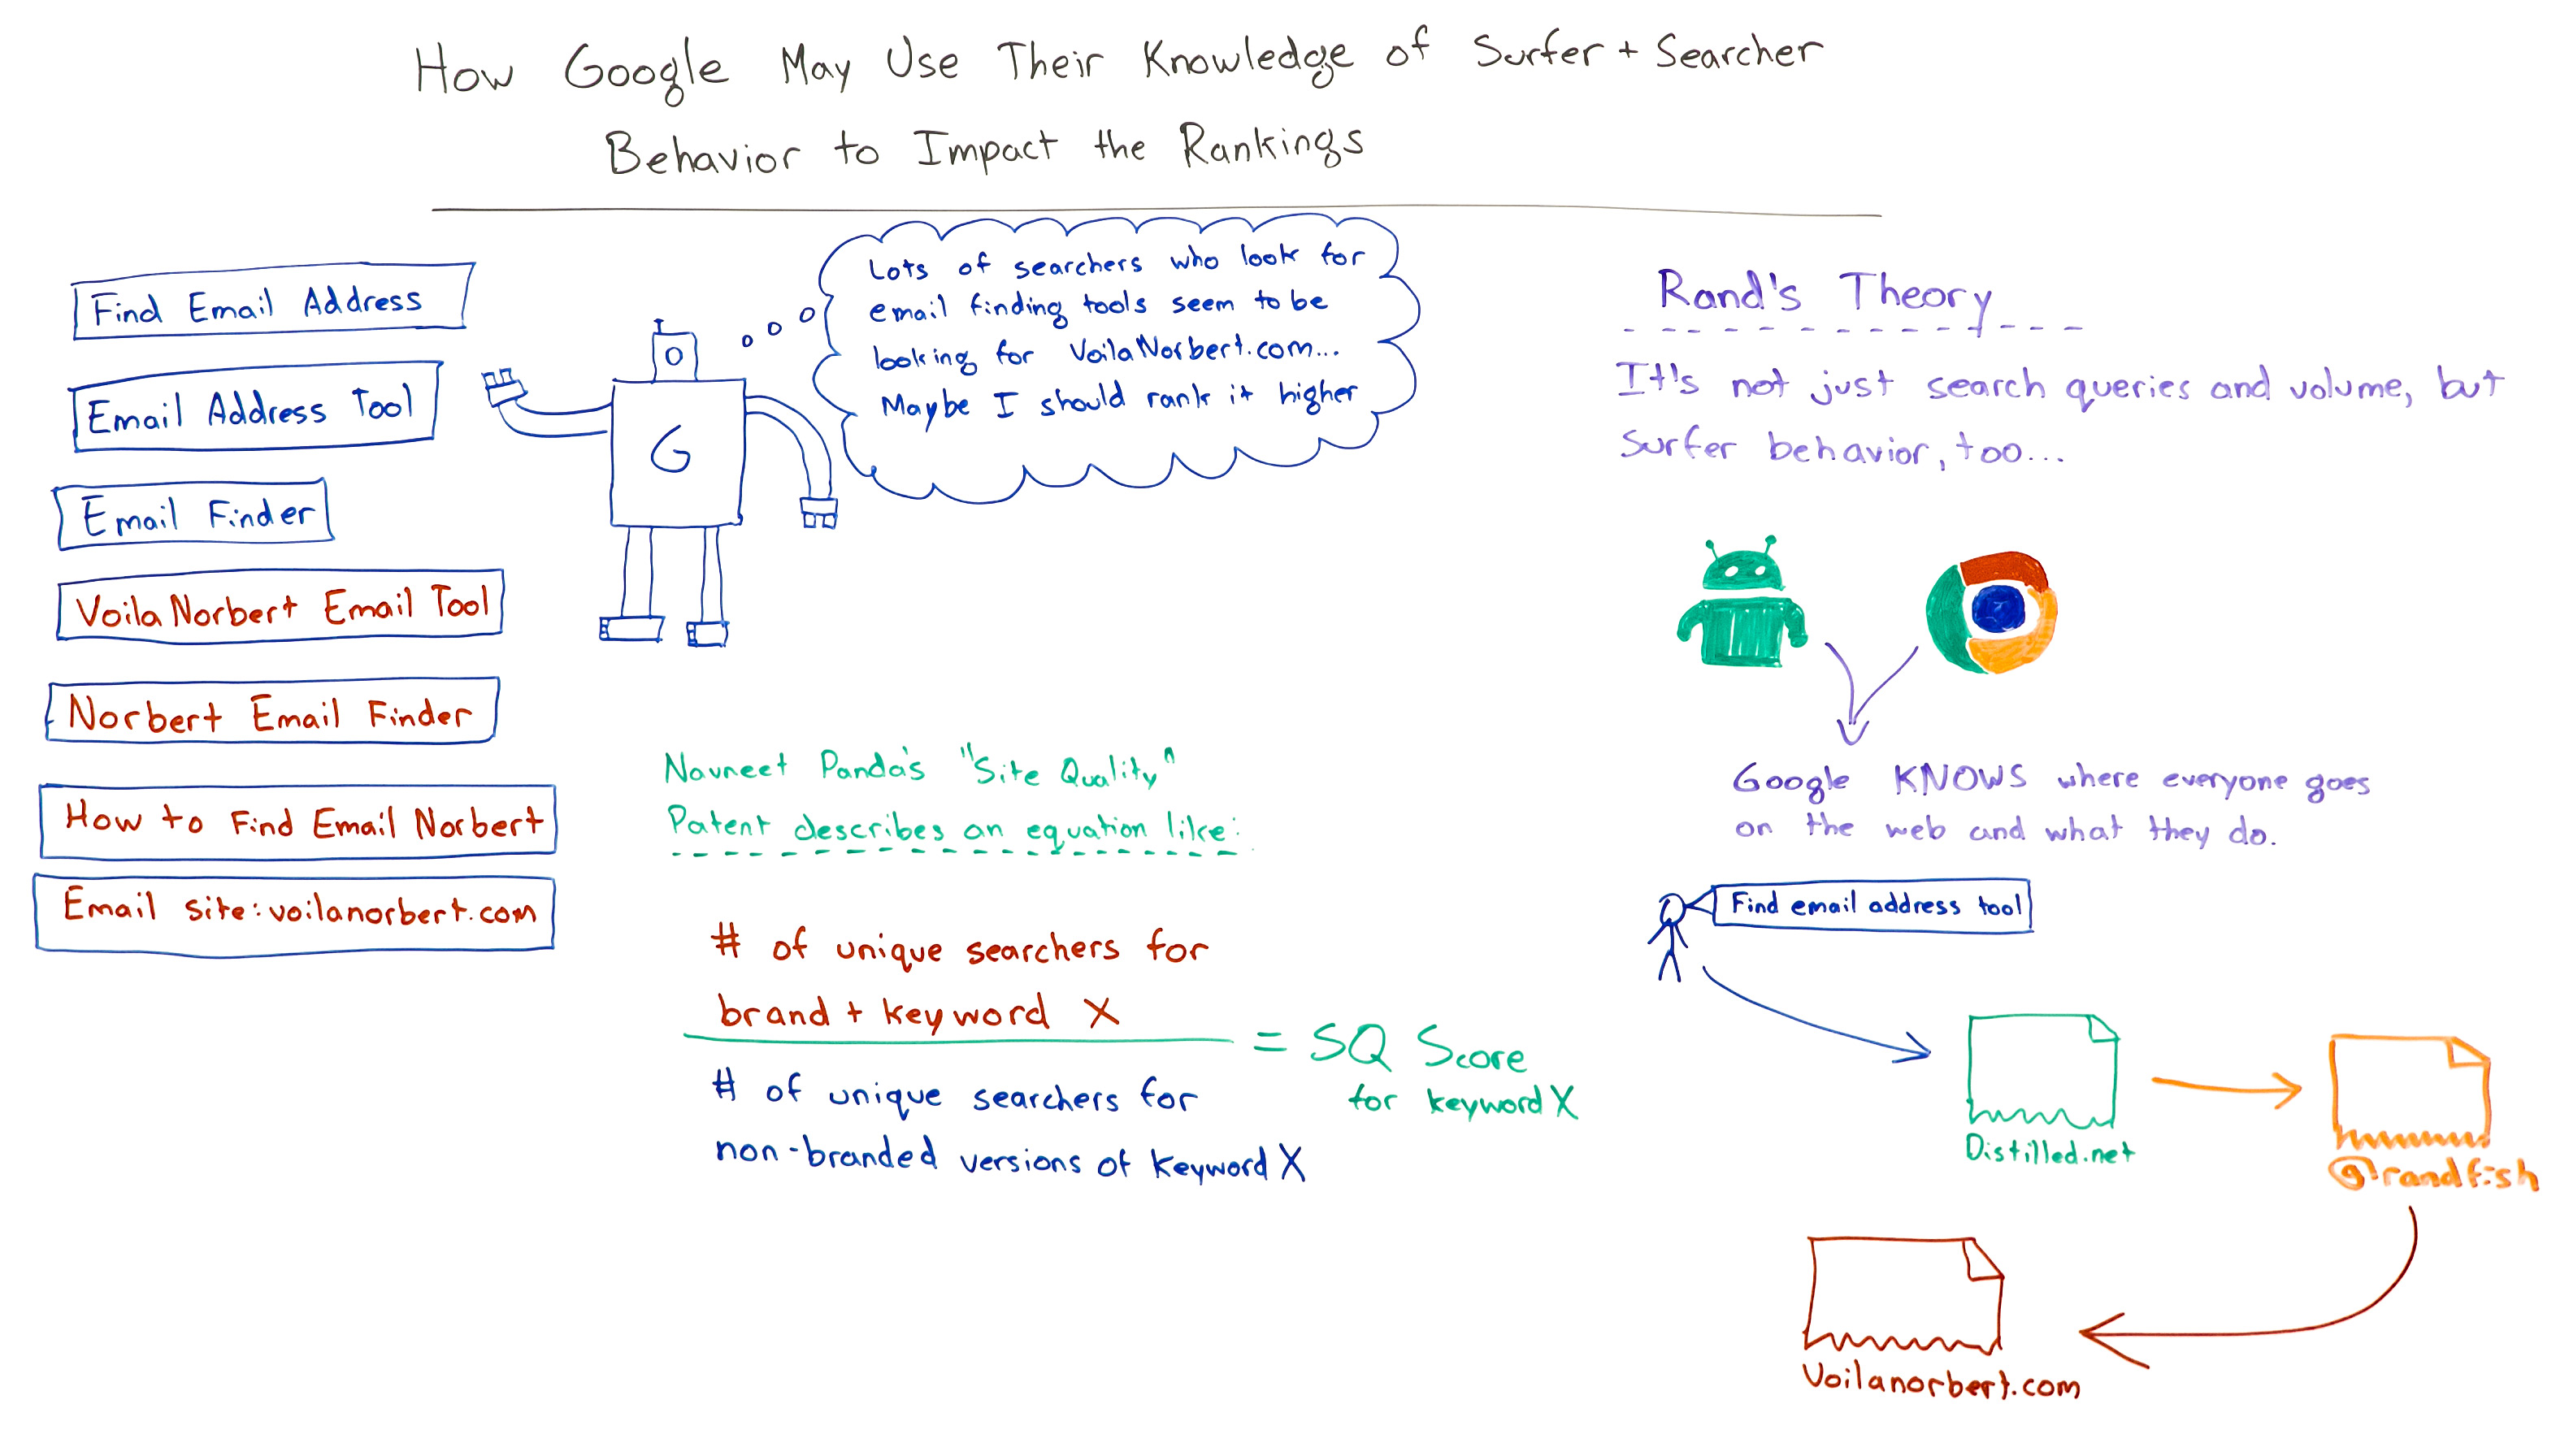 How Google May Use Their Knowledge of Surfer + Searcher
Behavior to Impact the Rankings
Find Email Address
Email Address Tool
Email Finder
Voila Norbert Email Tool
Norbert Email Finder
How to Find Email Norbert
Email site:voilanorbert.com
G
Lots of searchers who look for
email finding tools seem to be
looking for VoilaNorbert.com...
Maybe I should rank it higher
Navneet Panda's "Site Quality"
Patent describes an equation like:
# of unique searchers for
brand + keyword X
# of unique searchers for
non-branded versions of keyword X
= SQ Score
for keyword X
Rand's Theory
It's not just search queries and volume, but
surfer behavior, too...
Google KNOWS where everyone goes
on the web and what they do.
Find email address tool
Distilled.net
@randfish
Voilanorbert.com